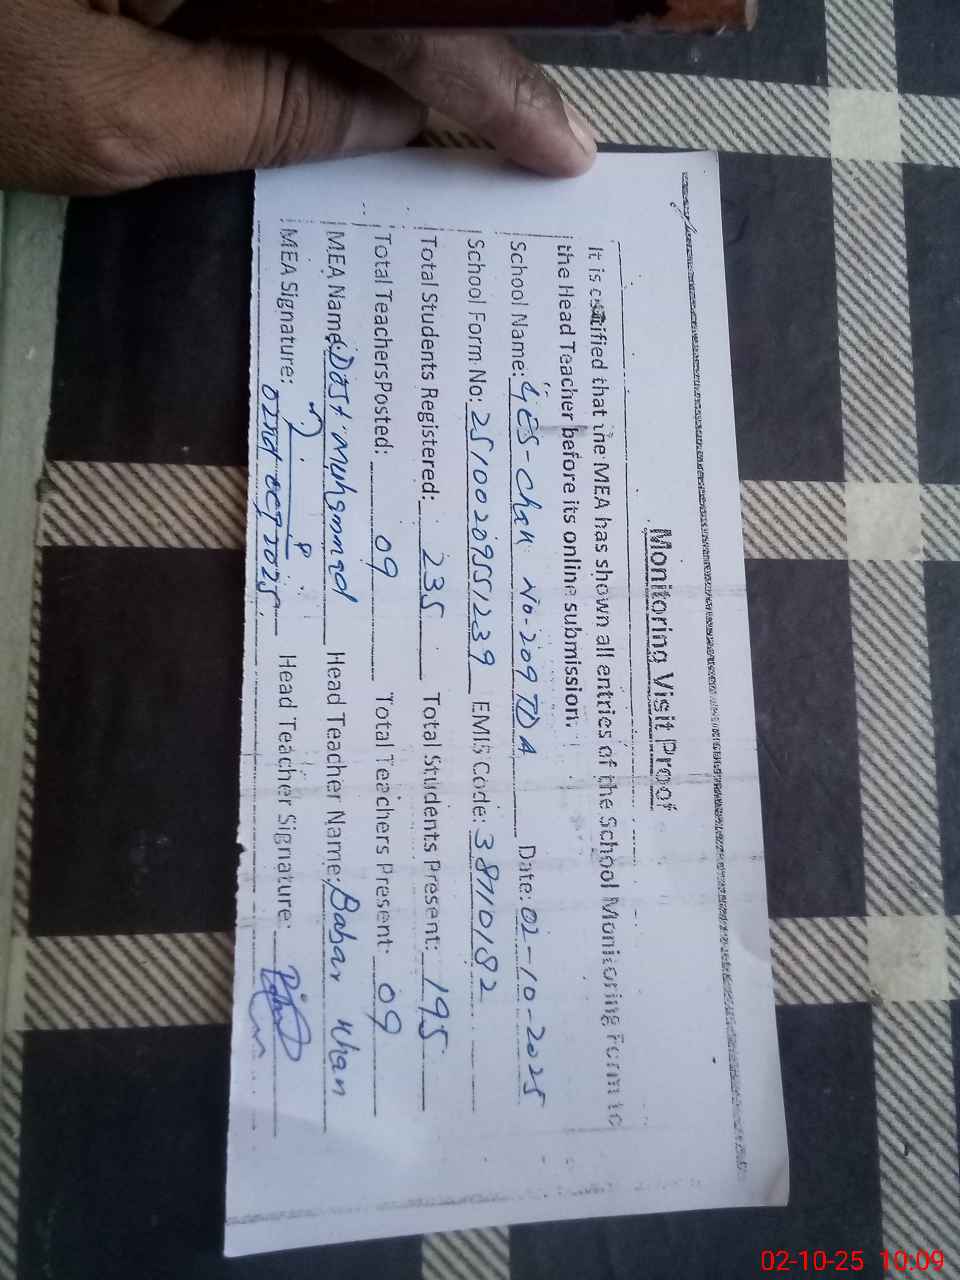 Monitoring Visit Proof
It is certified that the MEA has shown all entries of the School Monitoring Form to
the Head Teacher before its online submission.
School Name: GES-Chak No-209 TDA Date: 02-10-2025
School Form No: 25100209551239 EMIS Code: 38710182
Total Students Registered: 235 Total Students Present: 195
Total TeachersPosted: 09 Total Teachers Present: 09
MEA Name: Dost muhammad Head Teacher Name: Babar Khan
MEA Signature: Head Teacher Signature:
02nd oct, 2025.
02-10-25 10:09